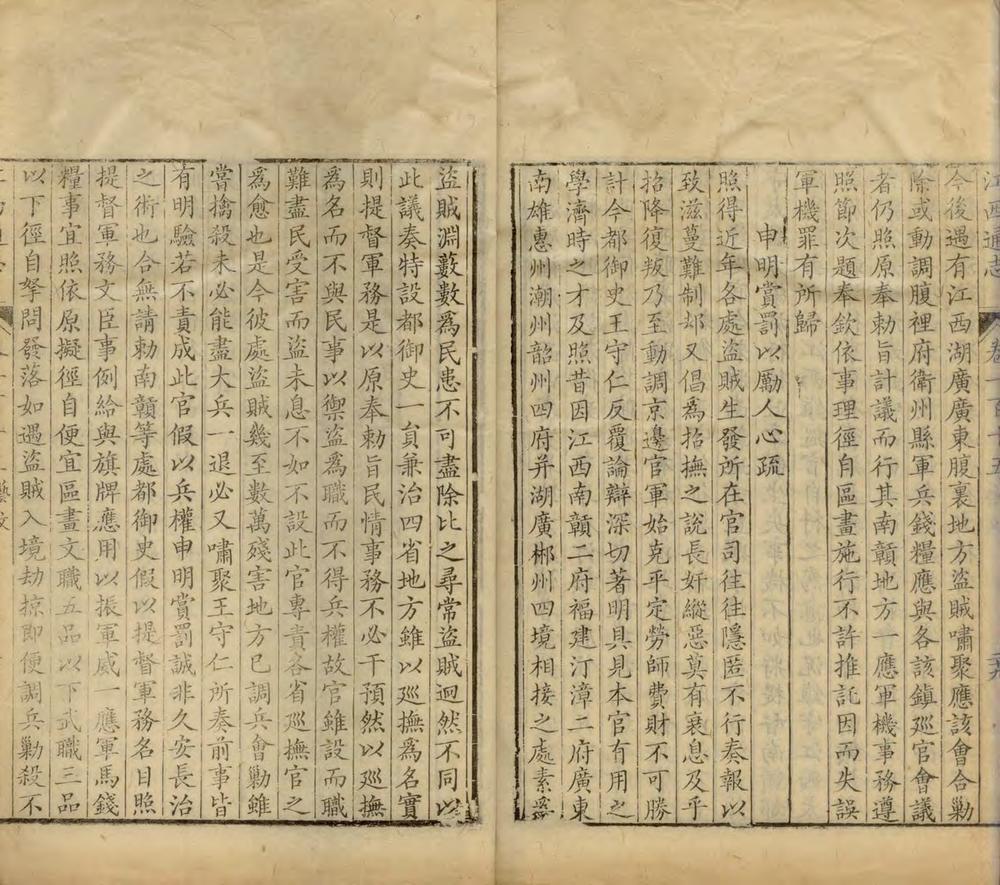 江西通志
今後遇有江西湖廣廣東腹裏地方盜賊嘯聚應該會合勦
除或動調腹裡府衛州縣軍兵錢糧應與各該鎮廵官會議
者仍照原奉勅旨計議而行其南贛地方一應軍機事務遵
照節次題奉欽依事理徑自區畫施行不許推託因而失誤
軍機罪有所歸
申明賞罰以勵人心疏
照得近年各處盜賊生發所在官司往往隱匿不行奏報以
致滋蔓難制却又倡為招撫之說長奸縱惡莫有衰息及乎
招降復叛乃至動調京邊官軍始克平定勞師費財不可勝
計今都御史王守仁反覆論辯深切著明具見本官有用之
學濟時之才及照昔因江西南贛二府福建汀漳二府廣東
南雄惠州潮州韶州四府并湖廣郴州四境相接之處素為
盜賊淵藪數為民患不可盡除比之尋常盜賊迥然不同以
此議奏特設都御史一員兼治四省地方雖以廵撫為名實
則提督軍務是以原奉勅旨民情事務不必干預然以廵撫
為名而不與民事以禦盜為職而不得兵權故官雖設而職
難盡民受害而盜未息不如不設此官專責各省廵撫官之
為愈也是今彼處盜賊幾至數萬殘害地方已調兵會勦雖
嘗擒殺未必能盡大兵一退必又嘯聚王守仁所奏前事皆
有明驗若不責成此官假以兵權申明賞罰誠非久安長治
之術也合無請勅南贛等處都御史假以提督軍務名目照
提督軍務文臣事例給與旗牌應用以振軍威一應軍馬錢
糧事宜照依原擬徑自便宜區畫文職五品以下武職三品
以下徑自拏問發落如遇盜賊入境劫掠即便調兵勦殺不